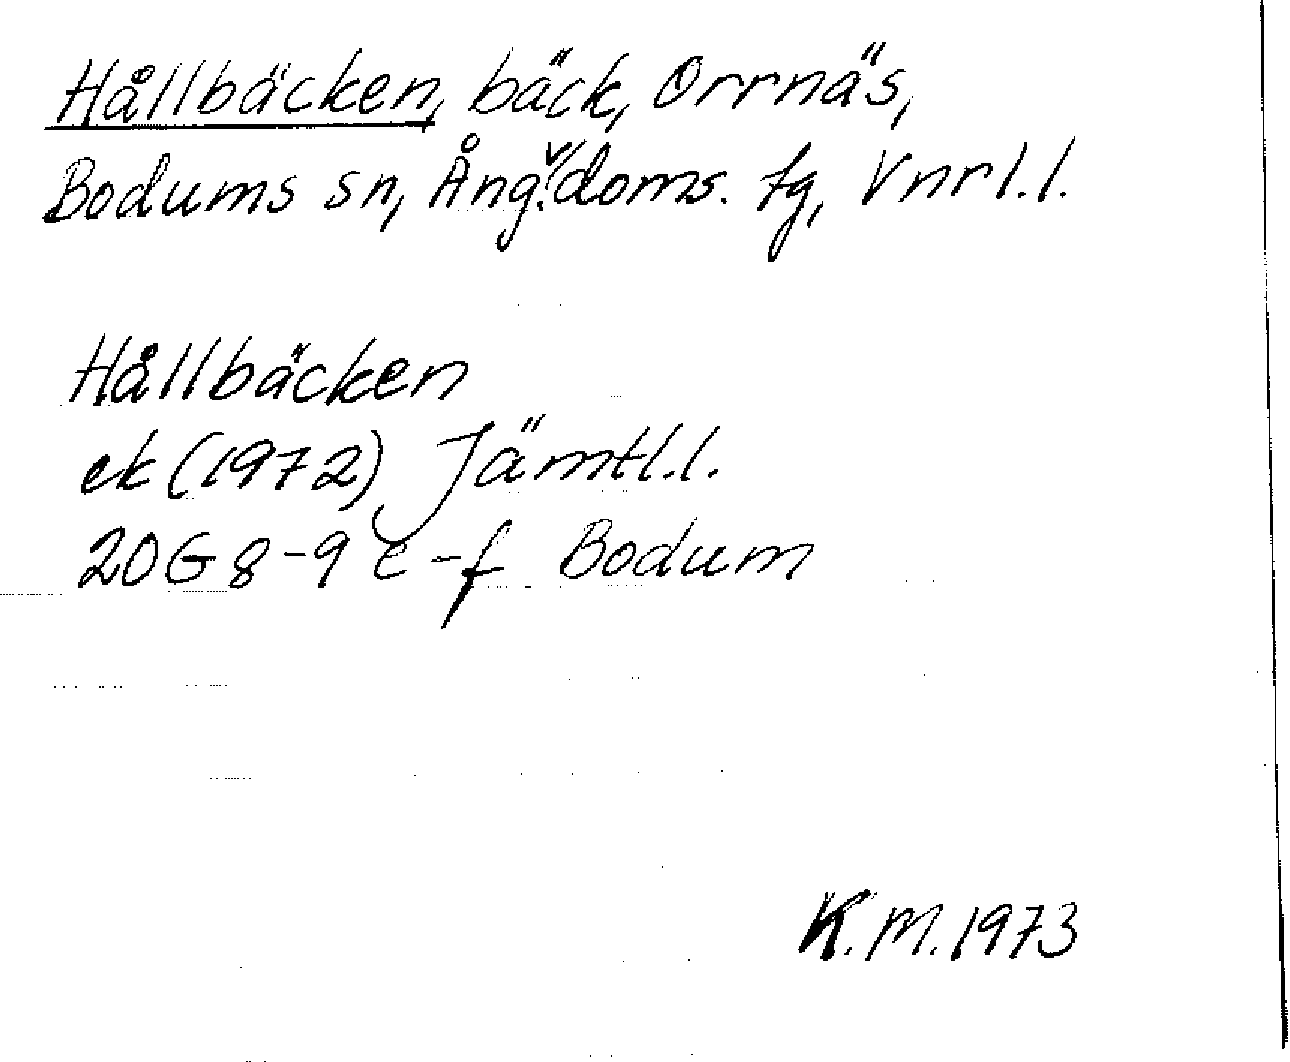 Hållbäcken, bäck, Orrnäs,
Bodums sn, Ång. doms. tg, Vnrl.l.
Hållbäcken
ek (1972) Jämtl.l.
20G 8-9 e-f Bodum
K.M. 1973